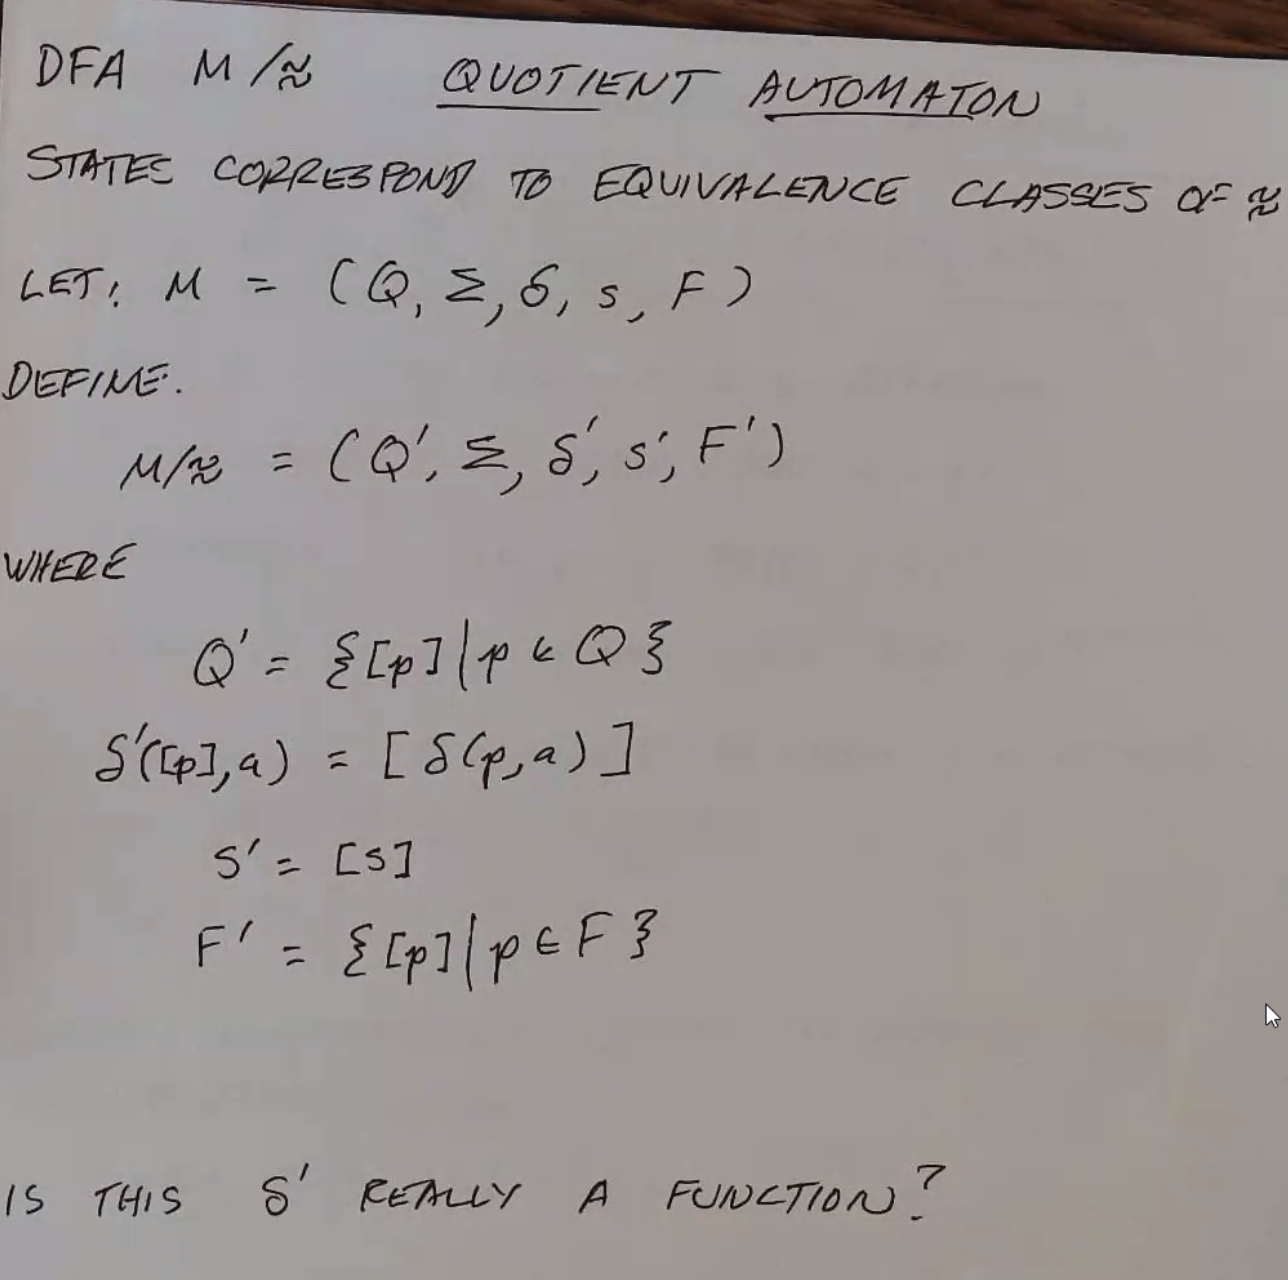 DFA M/≈ QUOTIENT AUTOMATON
STATES CORRESPOND TO EQUIVALENCE CLASSES OF ≈
LET: M = (Q, Σ, δ, s, F)
DEFINE.
M/≈ = (Q', Σ, δ', s', F')
WHERE
Q' = {[p] | p ∈ Q}
δ'([p], a) = [δ(p, a)]
s' = [s]
F' = {[p] | p ∈ F}
IS THIS δ' REALLY A FUNCTION?